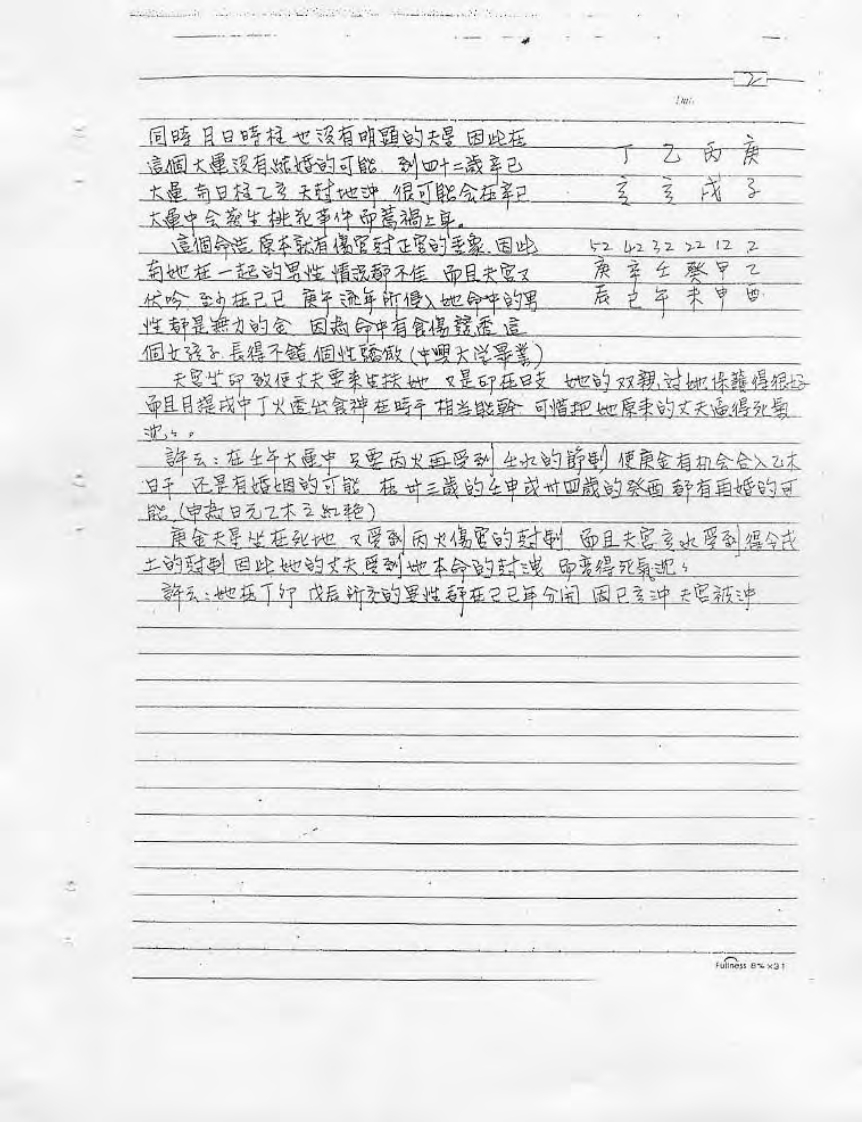 2
同時月日時柱也沒有明顯的夫星 因此在
這個大運沒有結婚的可能 到四十二歲辛巳
大運 與日柱乙亥 天尅地沖 很可能会在辛巳
大運中会發生桃花事件而舊禍上身。
丁 乙 丙 庚
亥 亥 戌 子
這個命造 原本就有傷官尅正官的現象 因此
與她在一起的男性 情況都不佳 而且夫宮又
伏吟 至少在己巳 庚午 流年所侵入她命中的男
性都是無力的金 因為命中有食傷競透 這
個女孩子長得不錯 個性驕傲 (中興大学畢業)
52 42 32 22 12 2
庚 辛 壬 癸 甲 乙
辰 巳 午 未 申 酉
夫宮坐印 致使丈夫要來生扶她 又是印在日支 她的双親 对她保護得很好
而且月提戌中丁火透出食神在時干 相当能幹 可惜把她原來的丈夫逼得死氣
沉々。
許云:在壬午大運中 只要丙火再受到 壬水的節制 使庚金有机会合入乙木
日干 还是有婚姻的可能 在卅三歲的壬申或卅四歲的癸酉 都有再婚的可
能 (申為日元乙木之紅艷)
庚金夫星坐在死地 又受到丙火傷官的尅制 而且夫宮亥水受到得令戌
土的尅制 因此她的丈夫受到她本命的尅洩 而变得死氣沉々
許云:她在丁卯 戊辰所交的異性都在己巳年分開 因巳亥沖 夫宮被沖
Fullness 8¾ x 31